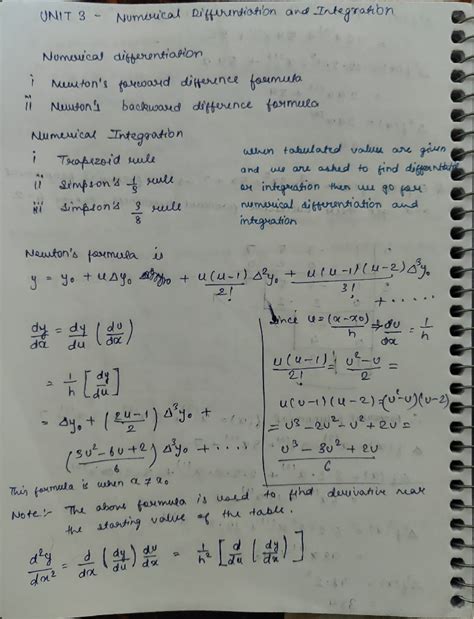 UNIT 3 - Numerical Differentiation and Integration
Numerical differentiation
i Newton's forward difference formula
ii Newton's backward difference formula
Numerical Integration
i Trapezoid rule
ii Simpson's 1/3 rule
iii Simpson's 3/8 rule
when tabulated value are given
and we are asked to find differentiate
or integration then we go for
numerical differentiation and
integration
Newton's formula is
y = y₀ + uΔy₀ + u(u-1)/2! Δ²y₀ + u(u-1)(u-2)/3! Δ³y₀
+ .....
dy/dx = dy/du (du/dx)
= 1/h [dy/du]
= Δy₀ + (2u-1/2) Δ²y₀ +
(3u²-6u+2/6) Δ³y₀ + ....
since u = (x-x₀)/h ⇒ du/dx = 1/h
u(u-1)/2! = u²-u/2 =
u(u-1)(u-2) = (u²-u)(u-2)
= u³-2u²-u²+2u =
u³-3u²+2u/6
This formula is when x ≠ x₀
Note:- The above formula is used to find derivative near
the starting value of the table.
d²y/dx² = d/dx (dy/du) du/dx = 1/h² [d/du (dy/du)]